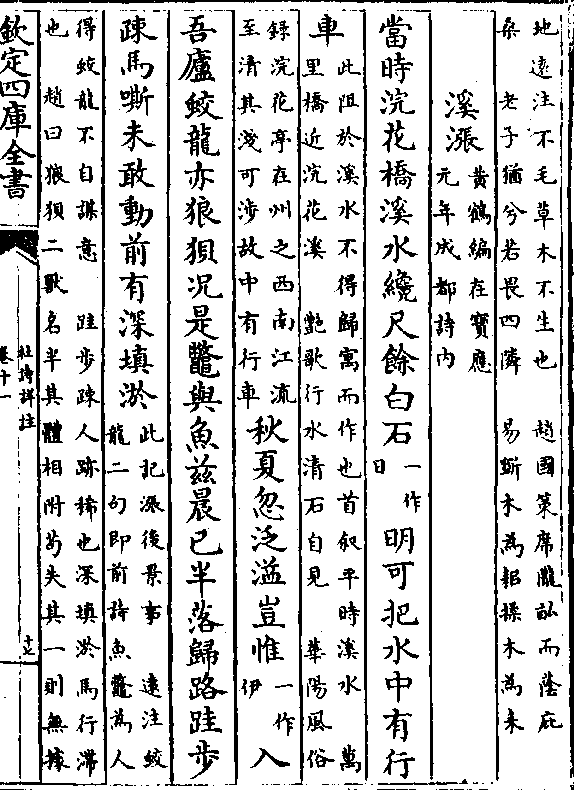 地遠注不毛草木不生也　趙國策席隴畝而蔭庇
桑　老子猶兮若畏四隣　易斲木為耜揉木為耒
溪漲 黃鶴編在寶應
元年成都詩內
當時浣花橋溪水纔尺餘白石 一作
日 明可把水中有行
車 此阻於溪水不得歸寓而作也首叙平時溪水　萬
里橋近浣花溪　艷歌行水清石自見　華陽風俗
録浣花亭在州之西南江流
至清其淺可涉故中有行車 秋夏忽泛溢豈惟 一作
伊 入
吾廬蛟龍亦狼狽况是鼈與魚兹晨已半落歸路跬步
疎馬嘶未敢動前有深填淤 此記漲後景事　遠注蛟
龍二句即前詩魚鼈為人
得蛟龍不自謀意　跬步疎人跡稀也深填淤馬行滯
也　趙曰狼狽二獸名半其體相附茍失其一則無據
欽定四庫全書
杜詩詳註
卷十一